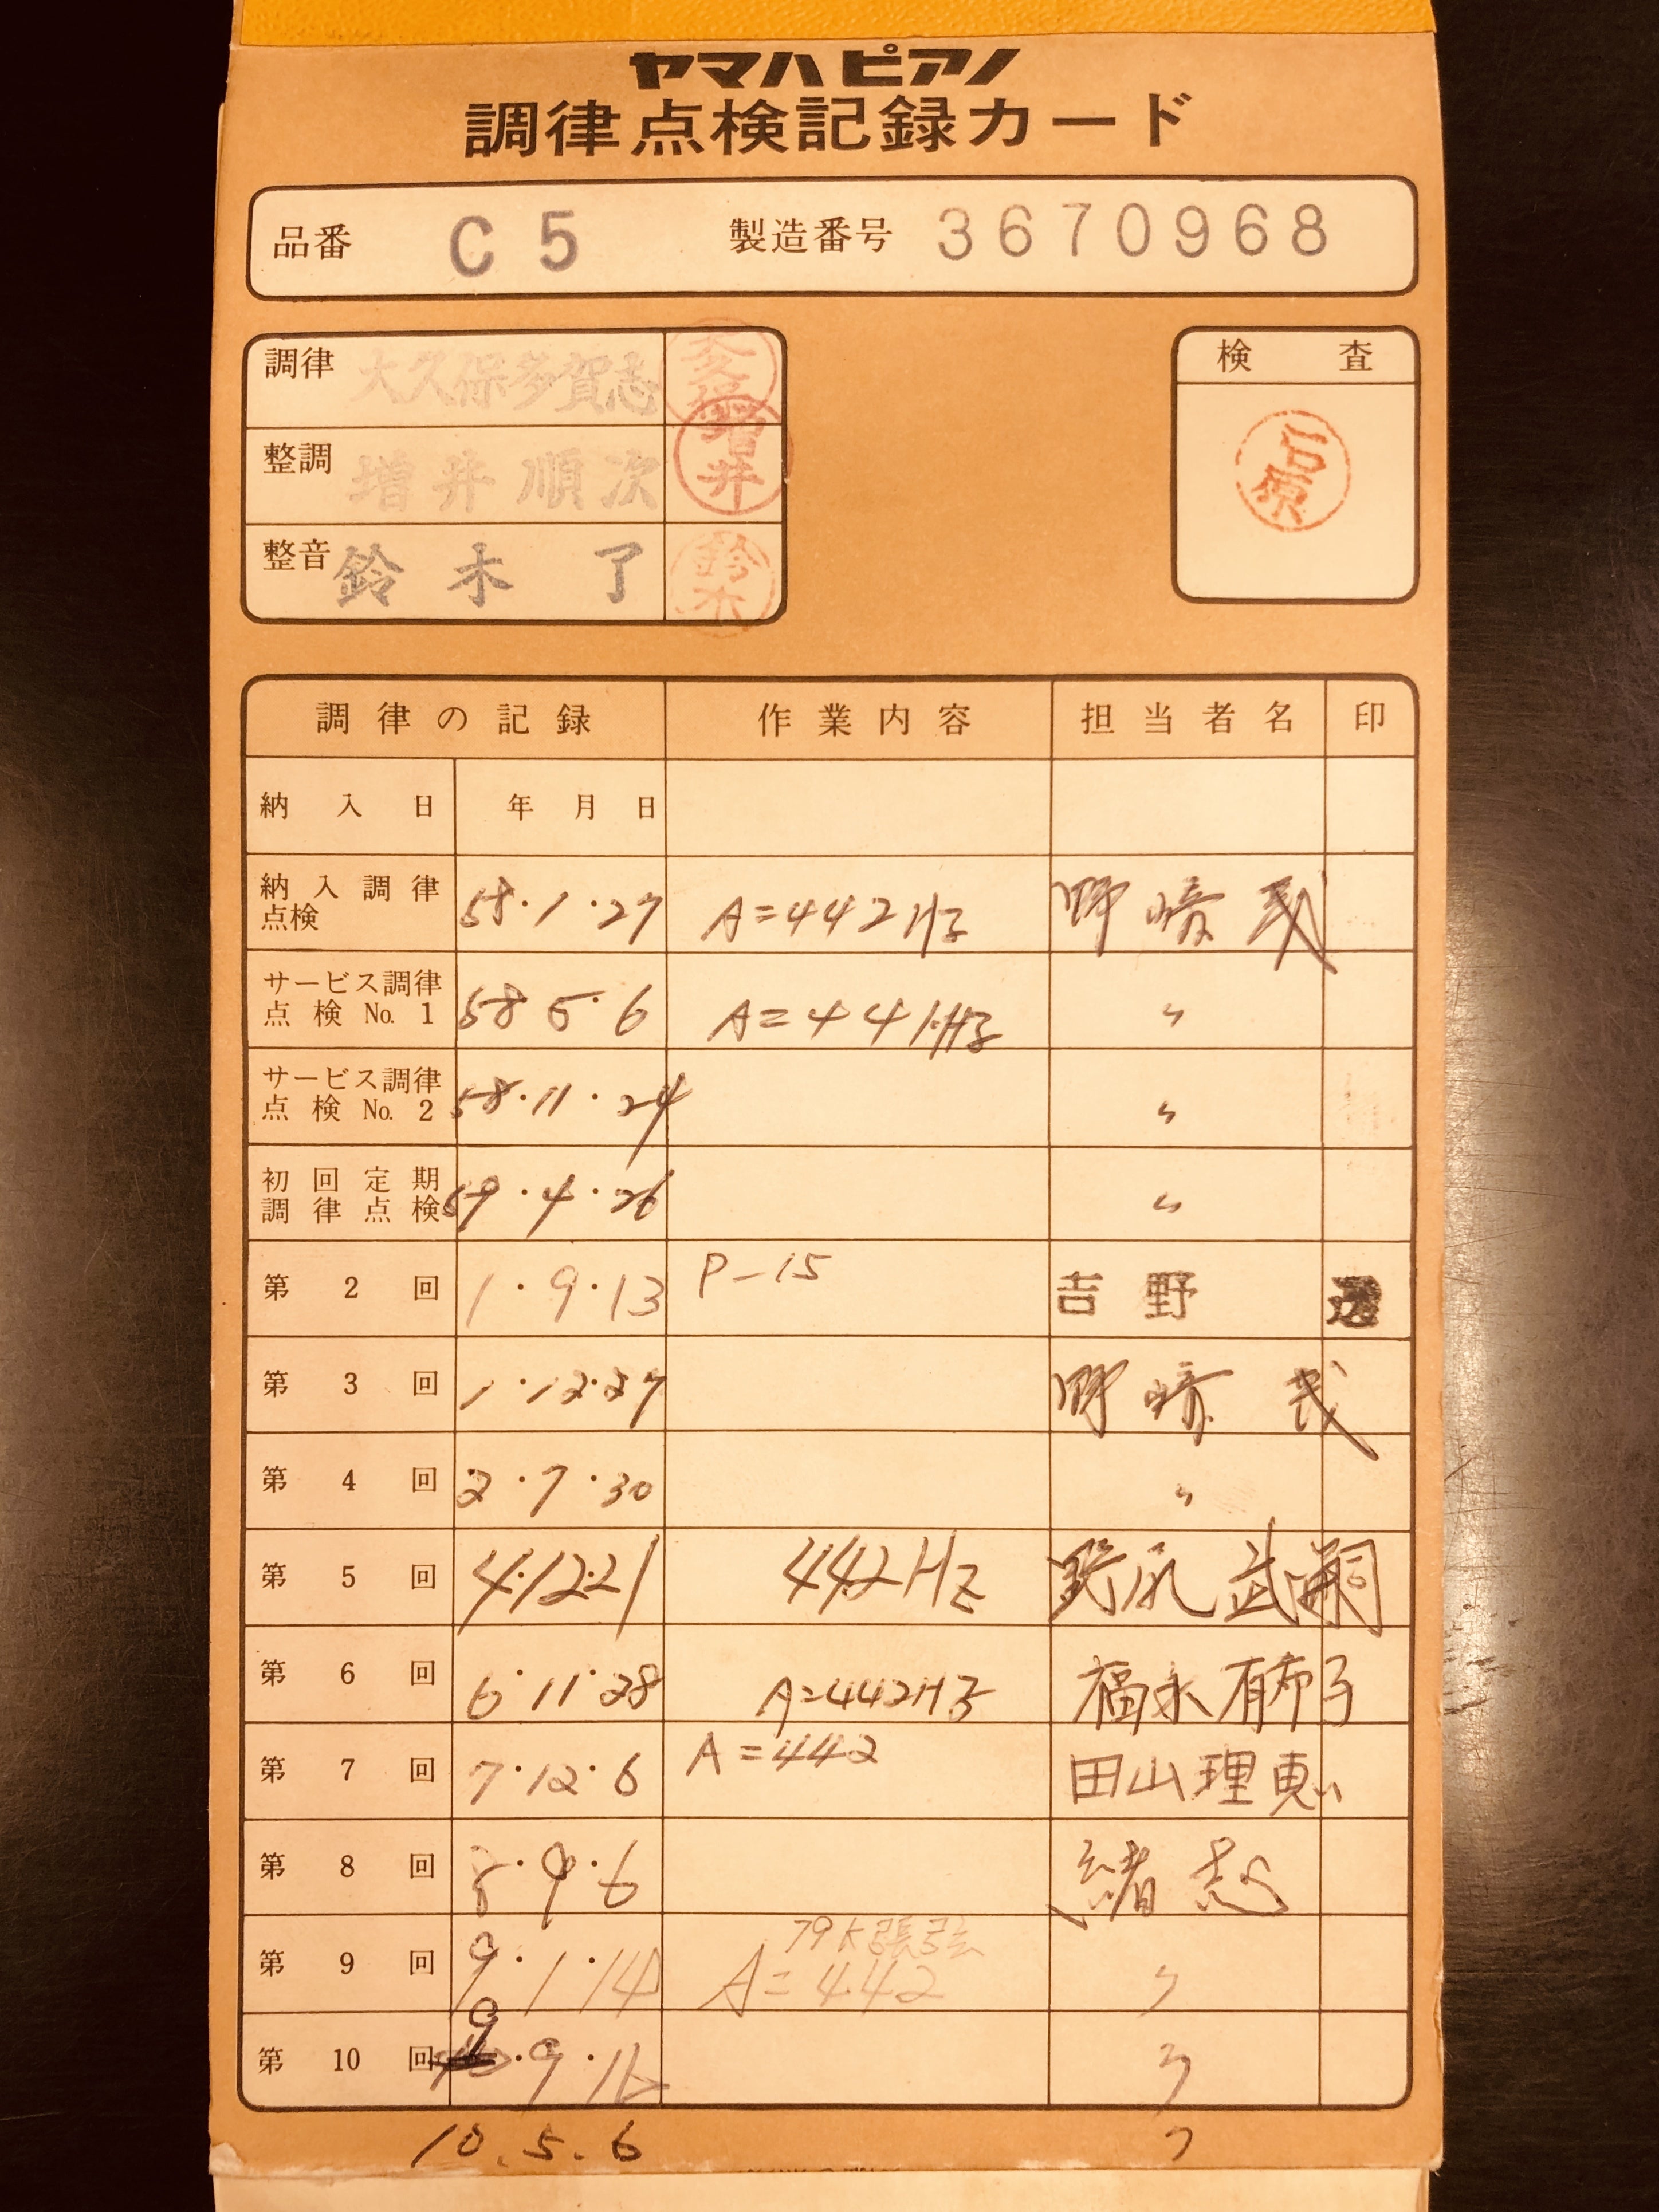 ヤマハピアノ
調律点検記録カード
品番 C5 製造番号 3670968
調律 大久保多賀志
整調 増井順次 増井
整音 鈴木了 鈴木
検査
石原
調律の記録 作業内容 担当者名 印
納入日 年月日
納入調律点検 58・1・27 A=442Hz 野崎
サービス調律点検 No.1 58 5・6 A=441Hz 〃
サービス調律点検 No.2 58・11・24 〃
初回定期調律点検 59・4・26 〃
第2回 1・9・13 P-15 吉野
第3回 1・12・27 野崎
第4回 2・7・30 〃
第5回 4・12・21 442Hz 野尻武嗣
第6回 6・11・28 A=442Hz 福永有希子
第7回 7・12・6 A=442 田山理恵
第8回 8・9・6 緒
第9回 9・1・14 79K張弦 A=442 〃
第10回 9・9・16 〃
10.5.6 〃